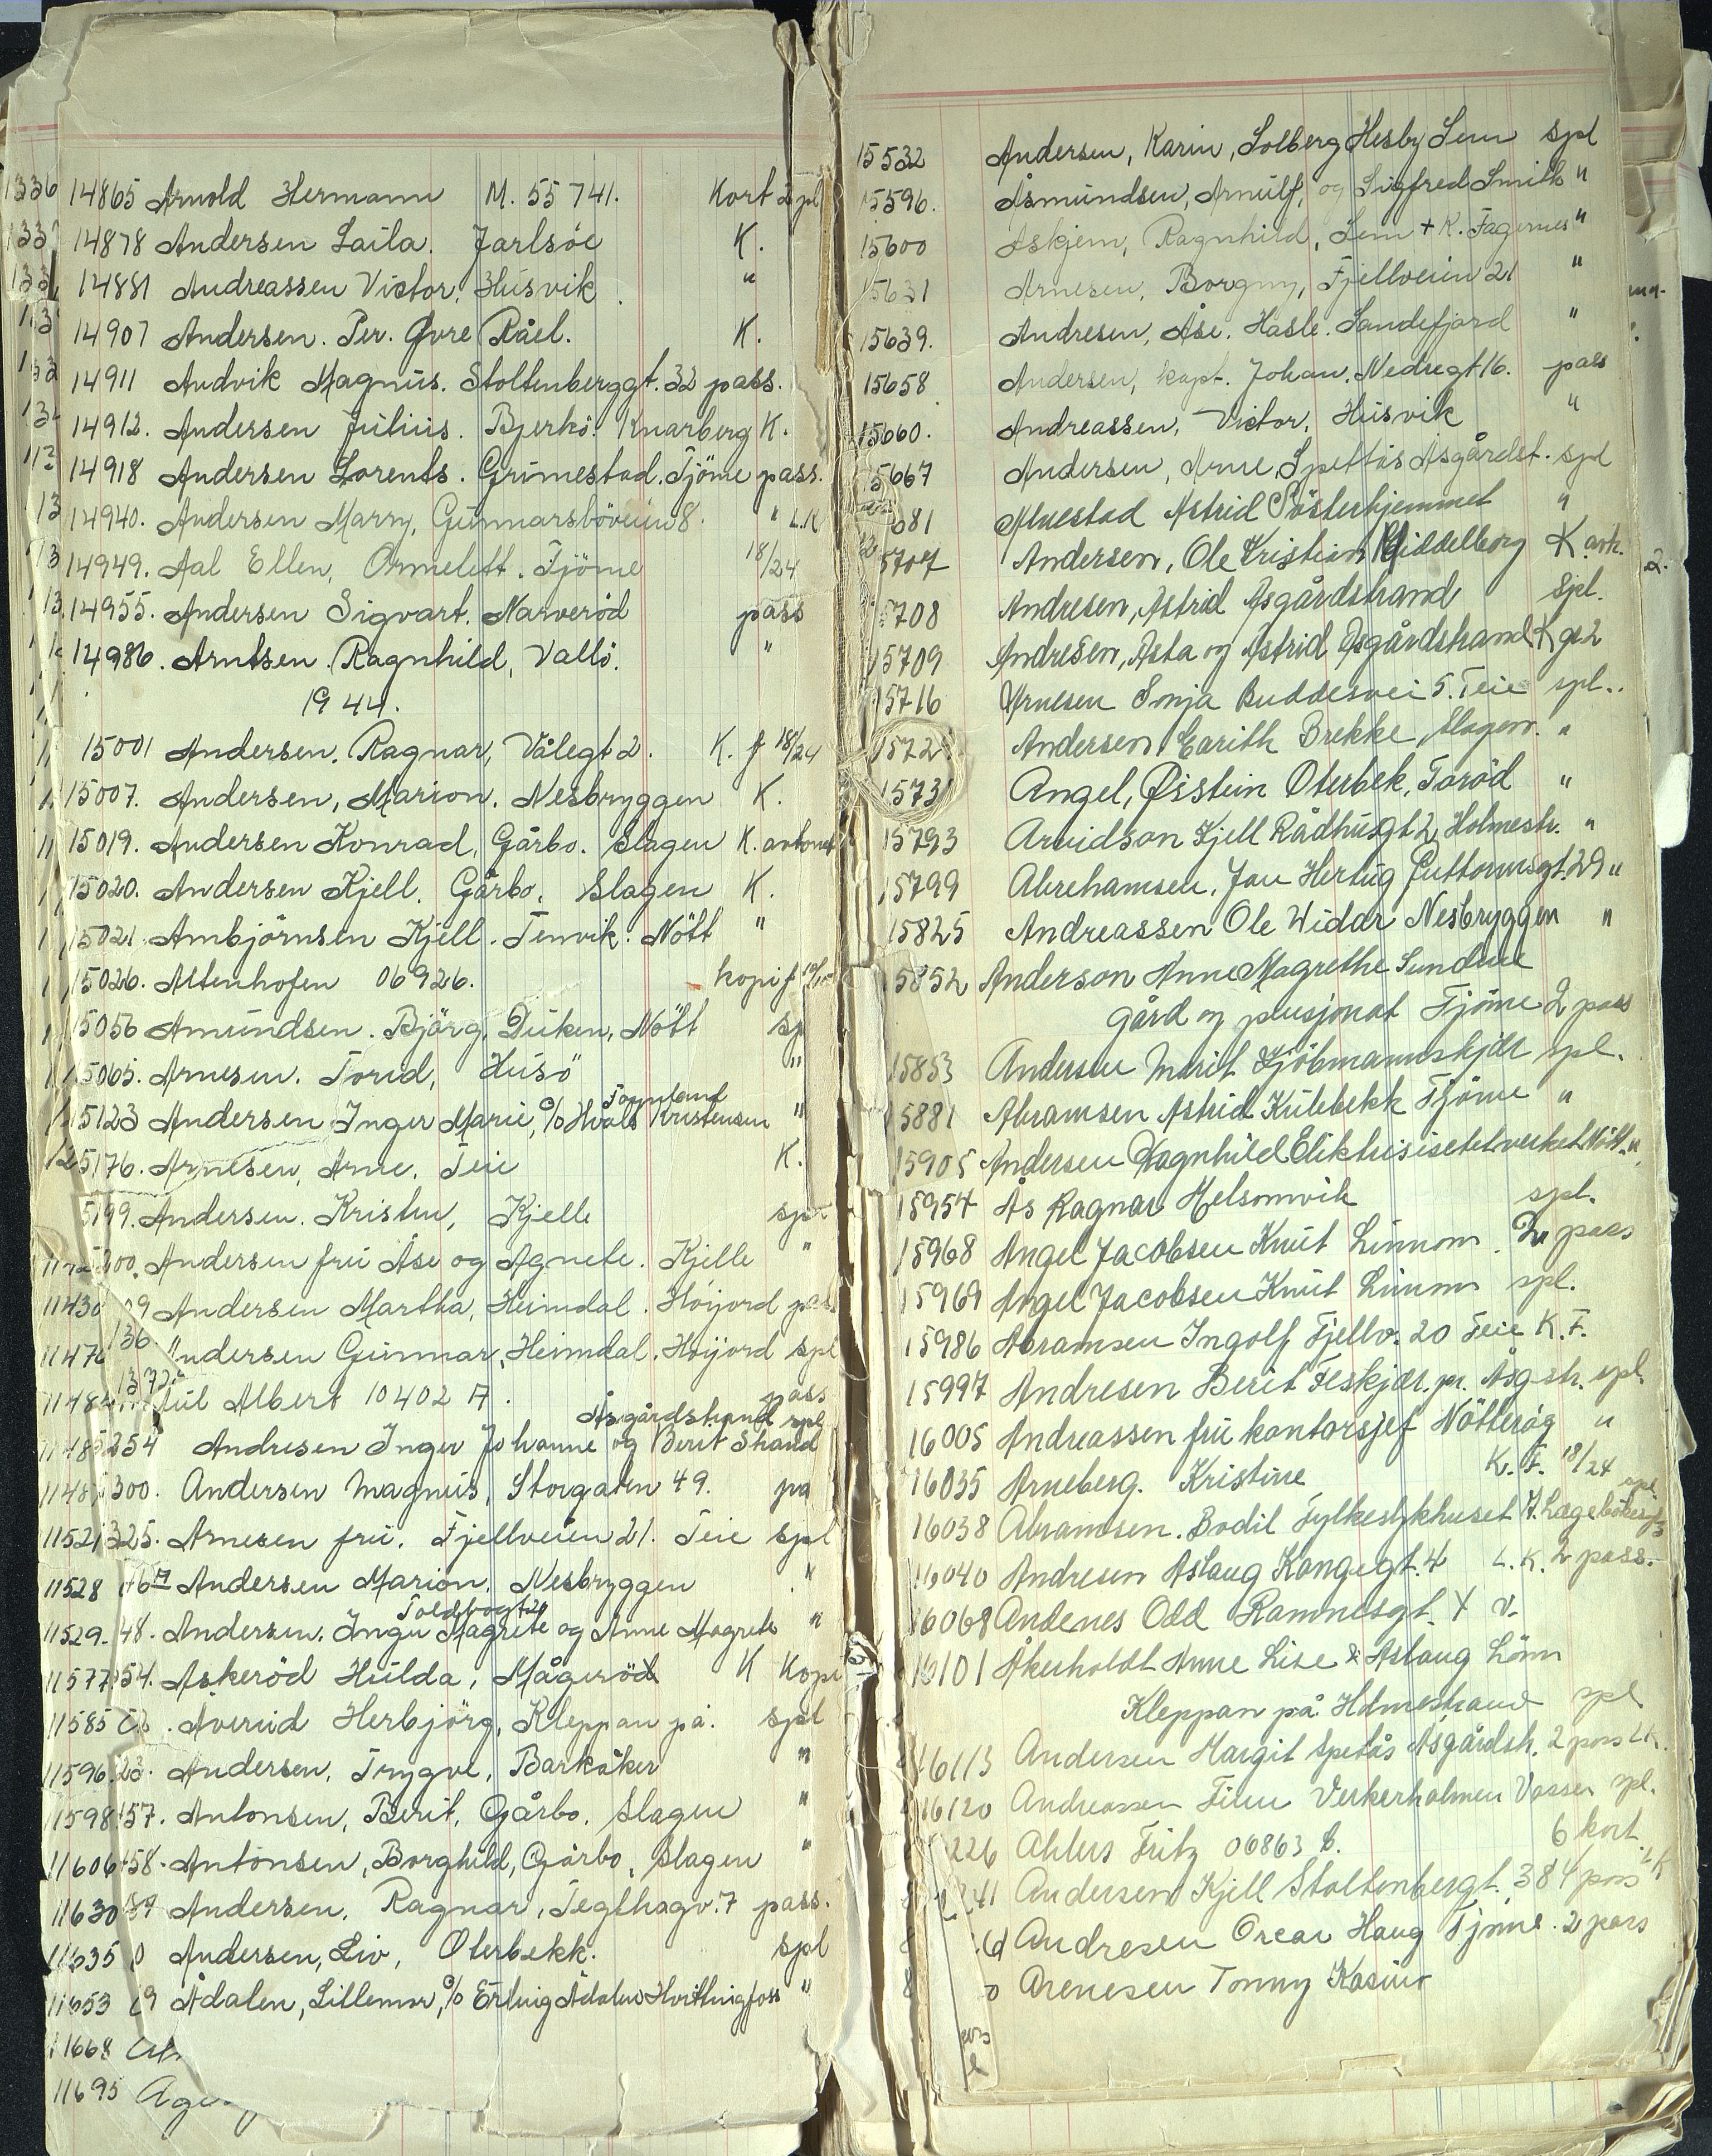 14865 Arnold Hermann M. 55 741. Kort 2 pl
14878 Andersen Laila. Jarlsöe K.
14881 Andreassen Victor, Husvik "
14907 Andersen. Per. Øvre Råel. K.
14911 Andvik Magnus. Stoltenberggt. 32 pass.
14912. Andersen Julius. Bjerkö. Knarberg K.
14918 Andersen Lorents. Grimestad. Tjöme pass.
14940. Andersen Marry, Gunnarsböveien 8. " L.K
14949. Aal Ellen, Ormelett. Tjöme 18/24
14955. Andersen Sigvart. Narveröd pass
14986. Arntsen. Ragnhild, Vallö. "
1944.
15001 Andersen. Ragnar, Vålegt 2. K. f 18/24
15007. Andersen, Marion. Nesbryggen K.
15019. Andersen Konrad, Gårbo. Slagen K.
15020. Andersen Kjell. Gårbo. Slagen K.
15021. Ambjörnsen Kjell. Tenvik. Nött "
15026. Altenhofen 06926. kopi f
15056 Amundsen. Bjørg, Duken, Nött sp
15065. Arnesen. Torid, Husö "
Tomland
15123 Andersen Inger Marie, c/o Hvals Kristensen "
5176. Arnesen, Arne. Teie K.
5199. Andersen. Kristen, Kjelle sp
200. Andersen frü Åse og Agnete. Kjelle "
11430 09 Andersen Martha, Heimdal. Höijord pas
11476 136. Andersen Gunnar, Heimdal. Höijord spl
Albert 10402 A. pass
Åsgårdstrand spl
11485 254 Andresen Inger Johanne og Berit Strand
300. Andersen Magnus, Storgaten 49. pa
11521 325. Arnesen frü. Fjellveien 21. Teie spl
11528 Andersen Marion. Nesbryggen "
Toldbogt 2
11529. 48. Andersen. Inger Magrete og Anne Magrete "
11577 54. Askeröd Hulda, Mågeröd K Kopi
11585 Åverud Herbjörg, Kleppan pa. spl
11596 23. Andersen, Trygve, Barkåker "
11598 457. Antonsen, Berit, Gårbo. Slagen "
11606 458. Antonsen, Borghild, Gårbo, Slagen "
11630 Andersen. Ragnar, Teglhagv. 7 pass.
11635 0 Andersen, Liv, Oterbekk. spl
11653 Ådalen, Lillemor, c/o Erling Ådalen Hvittingfoss "
11668
11695
15532 Andersen, Karin, Solberg Hesby Sem spl
15596. Åsmundsen, Arnulf, og Sigfred Smith "
15600 Askjem, Ragnhild, Sem + K. Fagernes "
15631 Arnesen, Borgny, Fjellveien 21 "
15639. Andresen, Åse. Hasle. Sandefjord "
15658 Andersen, kapt. Johan. Nedregt 16. pass
15660. Andreassen, Victor, Husvik "
15667 Andersen, Arne, Spettås Åsgårdst. spl
681 Alnestad Astrid Sösterhjemmet "
5707 Andersen, Ole Kristian Middelborg K avh.
5708 Andresen, Astrid Åsgårdstrand Spl.
15709 Andresen, Asta og Astrid Åsgårdstrand K gs 2
15716 Arnesen Sonja Buddesvei 5. Teie spl.
1572 Andersen Earith Brekke, Slagen. "
1573 Angel, Øistein Oterbek, Toröd "
15793 Arvidson Kjell Rådhusgt 2 Holmestr. "
15799 Abrehamsen, Jan Hertug Guttormsgt. 29 "
15825 Andreassen Ole Widar Nesbryggen "
15852 Anderson Anne Magrethe Sundene
gård og pensjonat Tjöme 2 pass
15853 Andersen Marit Kjöbmannskjær spl.
15881 Abramsen Astrid Kulebekk Tjöme "
15905 Andersen Ragnhild Elektrisisetetverket Nött. "
15954 Ås Ragnar Melsomvik spl.
15968 Angel Jacobsen Knut Linnom. 2 pass
15969 Angel Jacobsen Knut Linnom spl.
15986 Abramsen Ingolf Fjellv. 20 Teie K.F.
15997 Andresen Berit Feskjær. pr. Åsg.str. spl.
16005 Andreassen frü kontorsjef Nötteröy "
16035 Arneberg. Kristine K.F. 18/24
16038 Abramsen. Bodil Fylkesykhuset spl
16040 Andresen Aslaug Kongegt. 4 L.K. 2 pass.
16068 Andenes Odd Ramnesgt. 4 v.
16101 Åkerholdt Anne Lise & Aslaug Lönn
Kleppan på Holmestrand spl
16113 Andersen Margit Spetås Åsgårdstr. 2 pass LK.
16120 Andreassen Finn Verkerholmen Vasser spl.
226 Ahlers Fritz 00863 B. 6 kort.
241 Andersen Kjell Stoltenbergt. 38 4 pass LK
Andresen Oscar Haug Tjöme. 2 pass
Arenesen Tonny Kasino